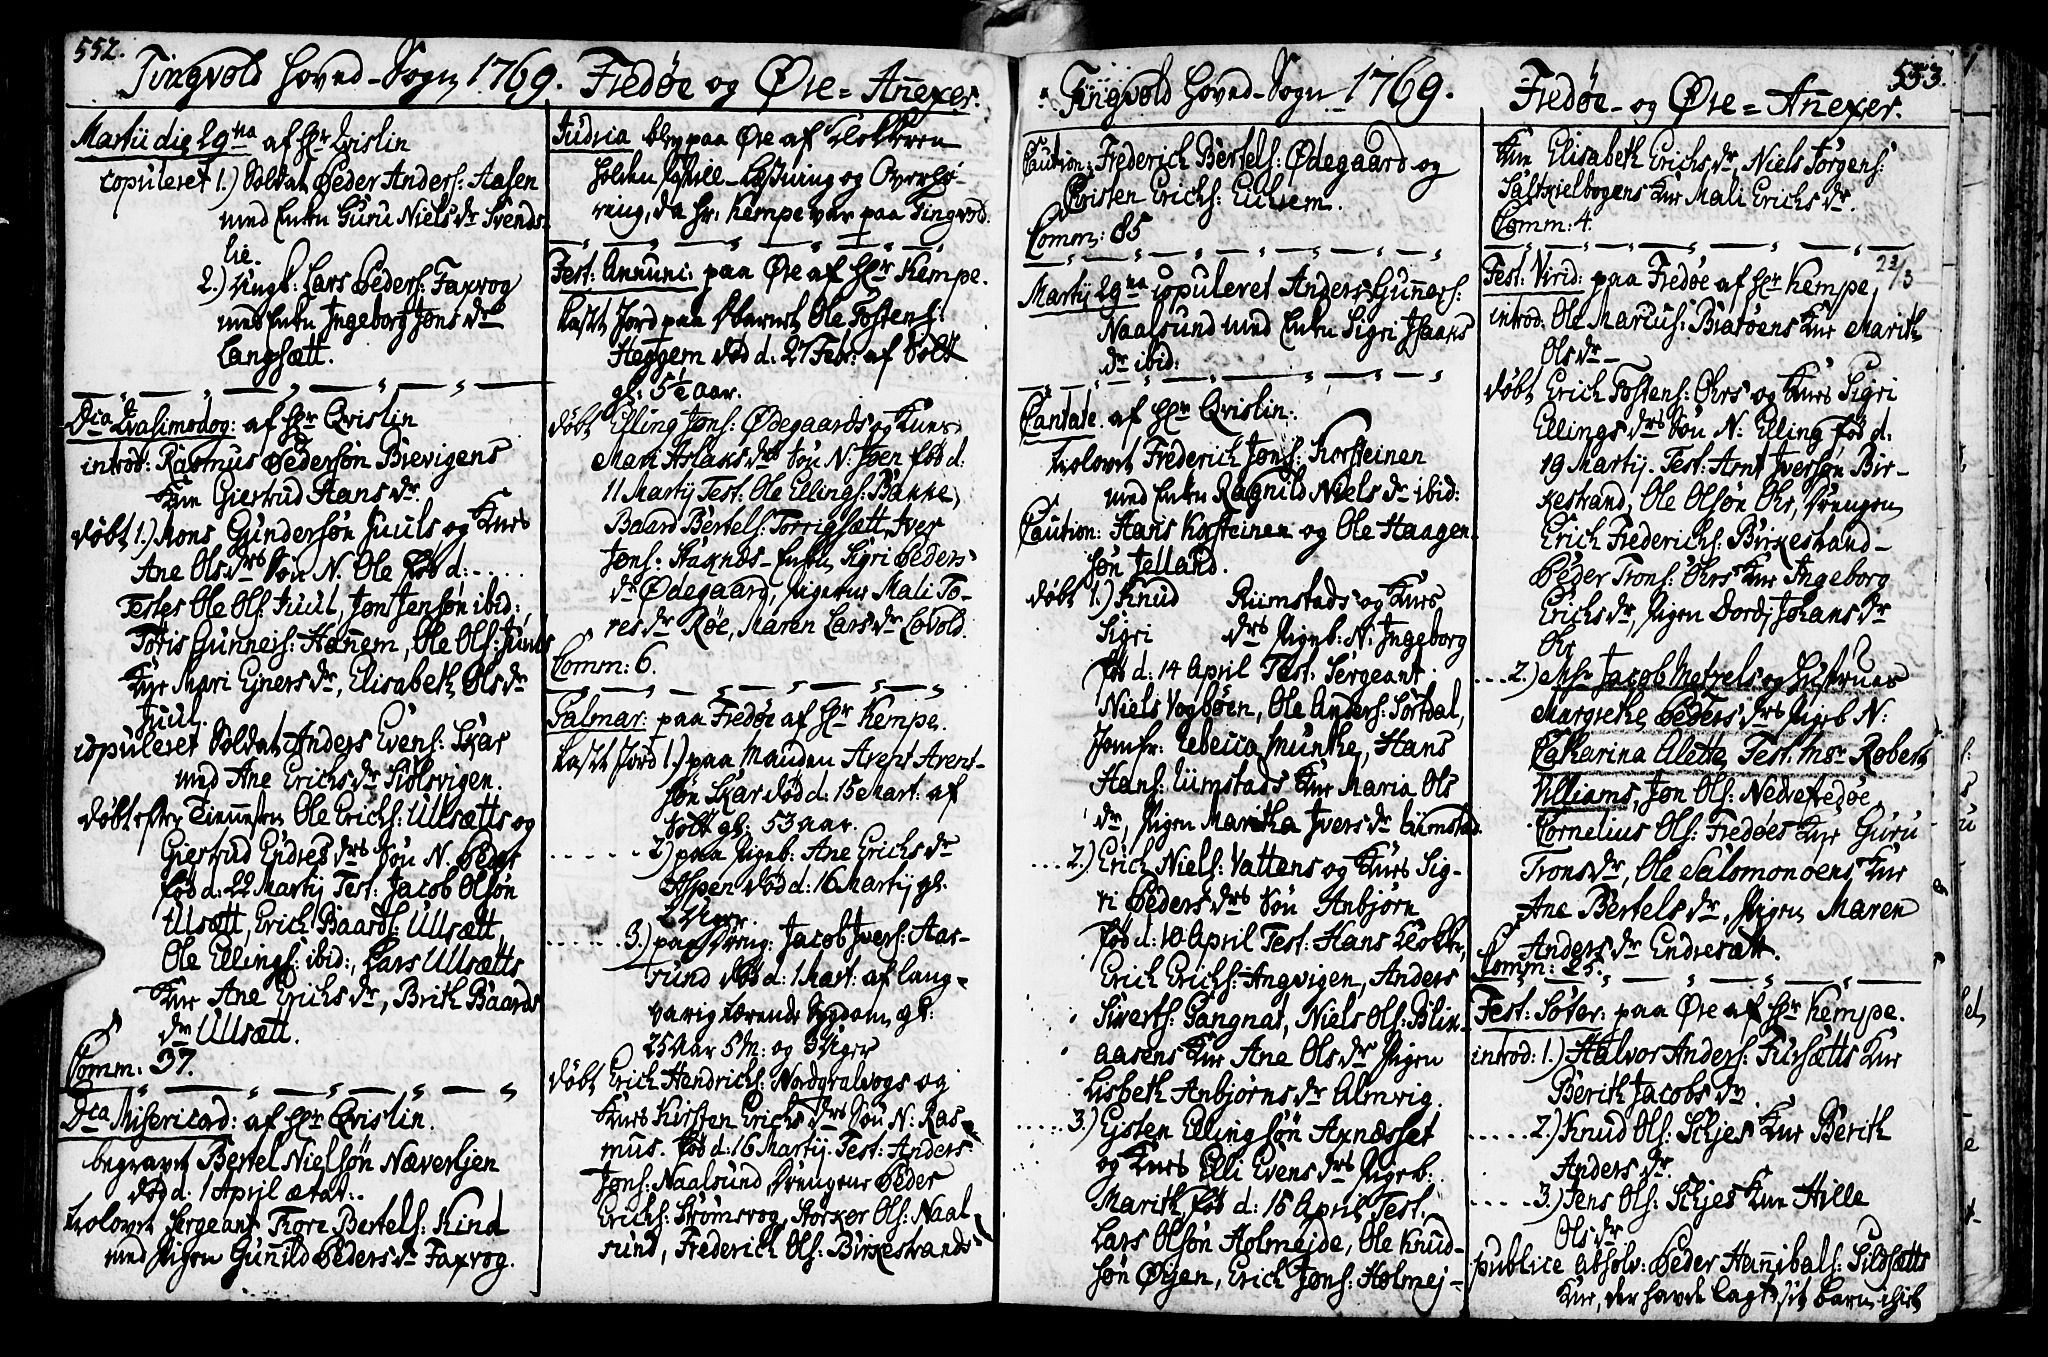 552.
Tingvold Hoved-Sogn 1769. Fredøe og Øre = Anexer.
Martii die 29na af Hr Qvislin
copuleret 1.) Soldat Peder Anders: Aasen
med Enken Guru Niels dr Svends-
lie.
2.) Ungk: Lars Peders: Faxvog
med Enken Ingeborg Jons dr
Langsætt.
Dca Qvasimodog: af Hr Qvislin
introd: Rasmus Pedersøn Brevigens
Kone Giertrud Hans dr.
døbt 1.) Mons Gundersøn Juuls og Kones
Ane Ols drs Søn N. Ole fød d: . . . .
Testes Ole Ols: Juul, Jon Jensøn ibid:
Toris Gunners: Hanem, Ole Ols: Juuls
Kone Mari Ejners dr, Elisabeth Ols dr
Juul.
copuleret Soldat Anders Evens: Skar
med Ane Erichs dr Stolsvigen.
døbt efter Tienesten Ole Erichs: Ullsætts og
Giertrud Endres drs Søn N. Peder
fød d: 22 Martij Test: Jacob Olsøn
Ulsætt, Erich Baards: Ullsætt,
Ole Ellings: ibid:, Lars Ullsætts
Kone Ane Erichs dr, Brith Baards
dr Ullsætt.
Comm: 37.
Dca Misericord: af Hr Qvislin.
begravet Bertel Nielsøn Næverljen
død d: 1 April ætat:.
trolovet Sergeant Thore Bertels: Kind
med Pigen Gunild Peders dr Faxvog.
Judica blev paa Øre af Klokkeren
holden Psttill-Læsning og Overhø-
ring, da Hr: Kempe var paa Tingvold.
Fest: Annunc: paa Øre af Hr Kempe.
kastet Jord paa Pbarnet Ole Tostens:
Heggem død d: 27 Febr: af Sott
gl: 5½ aar.
døbt Elling Jons: Ødegaards og Kones
Mari Aslaks drs Søn N: Joen fød d:
11 Martij Test: Ole Ellings: Bakke,
Baard Bertels: Torrigsætt, Iver
Jons: Staknes- Enken Sigri Peders
dr Ødegaard, Pigerne Mali To-
res dr Røe, Maren Lars dr Lovold.
Comm: 6.
Palmar: paa Fredøe af Hr Kempe.
kastet Jord 1.) paa Manden Arent Arent-
søn Skar død d: 15 Mart: af
Sott gl: 53 aar.
. . . . . . 2) paa Pigeb: Ane Erichs dr
Aspen død d: 16 Martij gl.
2 Uger.
. . . . . . 3.) paa Dreng: Jacob Ivers: Aar-
sund død d: 1 Mart: af lang-
varig tærende Sygdom gl:
25 Aar 5 M: og 3 Uger
døbt Erich Hendrichs: Nordgralvogs og
Kones Kirsten Erichs drs Søn N: Ras-
mus. fød d: 16 Martij. Test: Anders
Jons: Naalsund, Drengene Peder
Erichs: Strømsvog, Storker Ols: Naal-
sund, Frederich Ols: Birkestrands
553.
Tingvold Hoved-Sogn 1769. Fredøe- og Øre = Anexer.
Caution: Frederich Bertels: Ødegaard og
Christen Erichs: Eichrem.
Comm: 85
Martij 29na copuleret Anders Gunners:
Naalsund med Enken Sigri Isaaks
dr ibid:
Cantate af Hr Qvislin:
trolovet Frederich Jons: Korsteinen
med Enken Ragnild Niels dr ibid:
Caution: Hans Korsteinen og Ole Haagen-
søn Jelland.
døbt 1.) Knud Rimstads og Kones
Sigri drs Pigeb: N: Ingeborg
fød d: 14 April Test: Sergeant
Niels Vogbøen, Ole Anders: Sortdal,
Jomfr: Rebecca Munthe, Hans
Hans: Rimstads Kone Maria Ols
dr, Pigen Maritha Ivers dr Rimstad.
. . . . 2.) Erich Niels: Vattens og Kones Sig-
ri Peders drs Søn Anbjørn
fød d: 10 April Test: Hans Klokker,
Erich Erichs: Angvigen, Anders
Siverts: Gangnat, Niels Ols: Blik-
aasens Kone Ane Ols dr Pigen
Lisbeth Anbjørns dr Almvig.
. . . . . 3.) Ejsten Ellingsøn Axnesset
og Kones Elli Evens drs Pigeb:
Marith, fød d: 15 April Test:
Lars Olsøn Holmejde, Ole Knud-
søn Øijen, Erich Jons: Holmej-
Kone Elisabeth Erichs dr, Niels Jørgens:
Saltkielbogens Kone Mali Erichs dr.
Comm: 4.
Fest: Virid: paa Fredøe af Hr Kempe, 23/3
introd: Ole Marcus: Bratøens Kone Marith
Ols dr
døbt Erich Tostens: Ohrs og Kones Sigri
Ellings drs Søn N: Elling fød d:
19 Martij. Test: Arnt Iversøn Bir-
kestrand, Ole Olsøn Ohr, Drengen
Erich Frederichs: Birkestrand-
Peder Trons: Ohrs Kone Ingeborg
Erichs dr, Pigen Dordj Johans dr
Ohr
. . . . 2.) Mhr Jacob Metzels og Hustrues
Margrethe Peders drs Pigeb N:
Catharina Alette, Test: Msr Robert
Villiams, Jon Ols: Nedrefredøe,
Cornelius Ols: Fredøes Kone Guru
Trons dr, Ole Salomonsens Kone
Ane Bertels dr, Pigen Maren
Anders dr Endresætt.
Comm: 25.
Fest: Soter: paa Øre af Hr Kempe.
introd: 1.) Halvor Anders: Fursætts Kone
Berith Jacobs dr.
. . . . . 2.) Knud Ols: Skjes Kone Berith
Anders dr.
. . . . 3.) Jens Ols: Skjes Kone Hille
Ols dr
publice absolv: Peder Hannibals: Sildsætts
Kone, der havde lagt sit barn ihiel